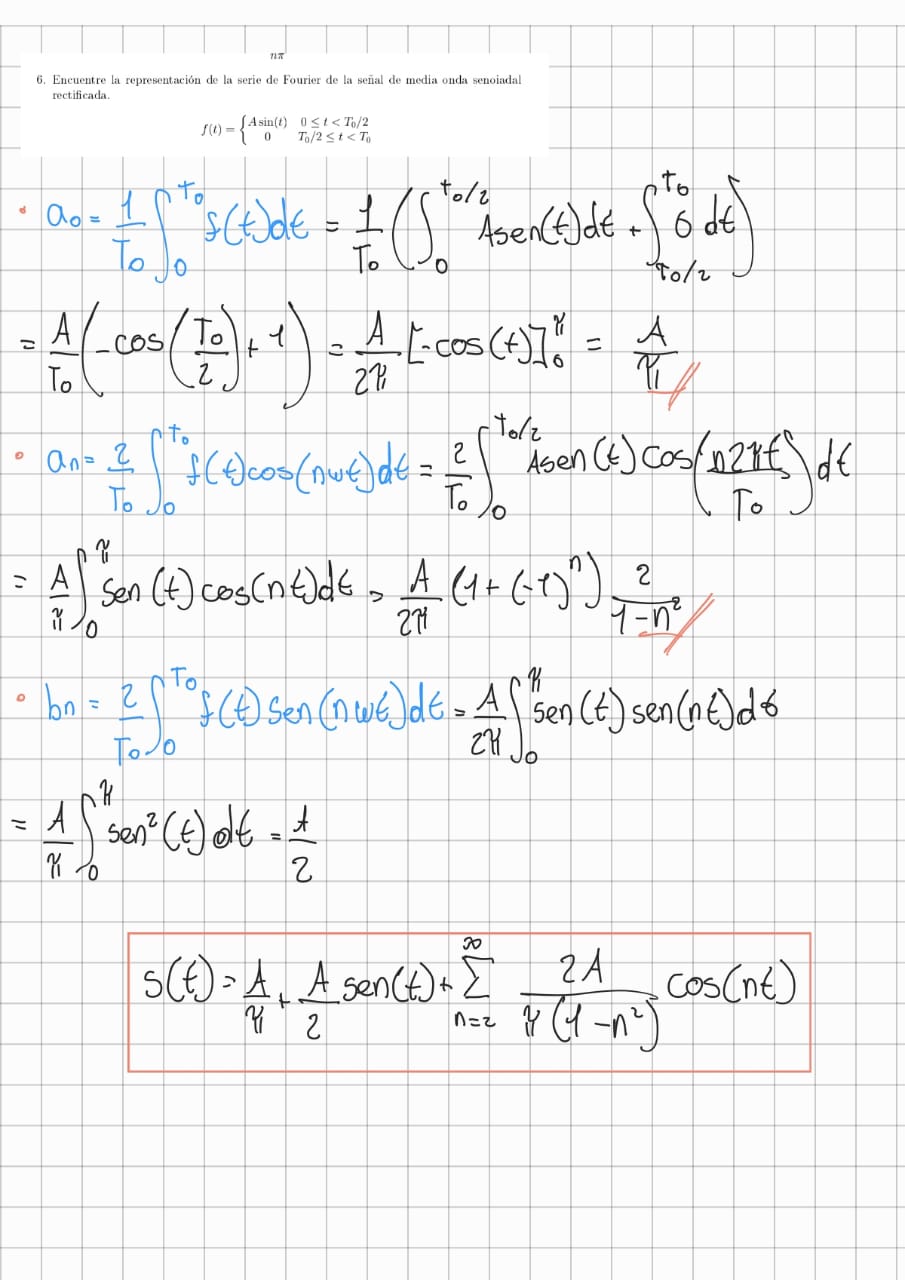 nπ
6. Encuentre la representación de la serie de Fourier de la señal de media onda senoiadal
rectificada.
f(t) = { A sin(t) 0 ≤ t < T₀/2
0 T₀/2 ≤ t < T₀
• a₀ = 1/T₀ ∫₀^T₀ f(t)dt = 1/T₀ (∫₀^t₀/2 Asen(t)dt + ∫_T₀/2^t₀ 0 dt)
= A/T₀ (-cos(T₀/2) + 1) = A/2π [-cos(t)]₀^π = A/π
• an = 2/T₀ ∫₀^T₀ f(t)cos(nwt)dt = 2/T₀ ∫₀^T₀/2 Asen(t)cos(n2πt/T₀)dt
= A/π ∫₀^π sen(t)cos(nt)dt = A/2π (1+(-1)ⁿ) 2/1-n²
• bn = 2/T₀ ∫₀^T₀ f(t)sen(nwt)dt = A/2π ∫₀^π sen(t)sen(nt)dt
= A/π ∫₀^π sen²(t)dt = A/2
s(t) = A/π + A/2 sen(t) + Σ_n=2^∞ 2A/π(1-n²) cos(nt)